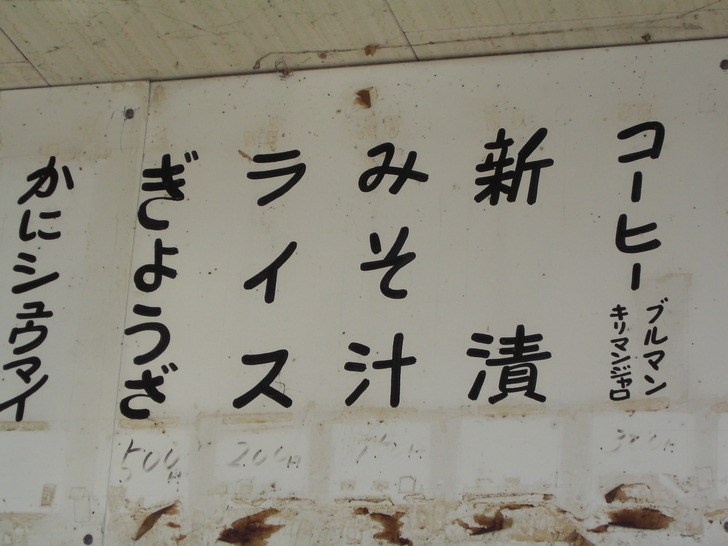 コーヒー
ブルマン
キリマンジャロ
新漬
みそ汁
ライス
200円
ぎょうざ
500円
かにシュウマイ